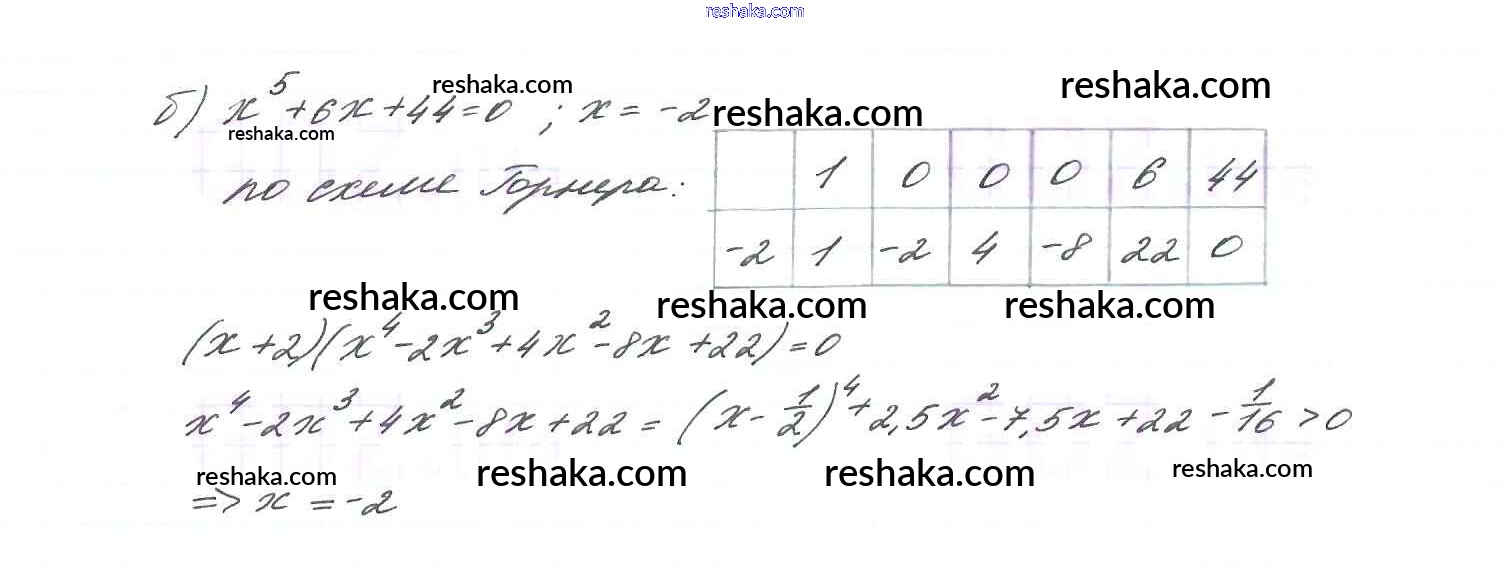 reshaka.com
reshaka.com reshaka.com
б) x⁵ + 6x + 44 = 0 ; x = -2 reshaka.com
reshaka.com
1 0 0 0 6 44
по схеме Горнера:
-2 1 -2 4 -8 22 0
reshaka.com reshaka.com reshaka.com
(x + 2)(x⁴ - 2x³ + 4x² - 8x + 22) = 0
x⁴ - 2x³ + 4x² - 8x + 22 = (x - 1/2)⁴ + 2,5x² - 7,5x + 22 - 1/16 > 0
reshaka.com reshaka.com reshaka.com reshaka.com
=> x = -2